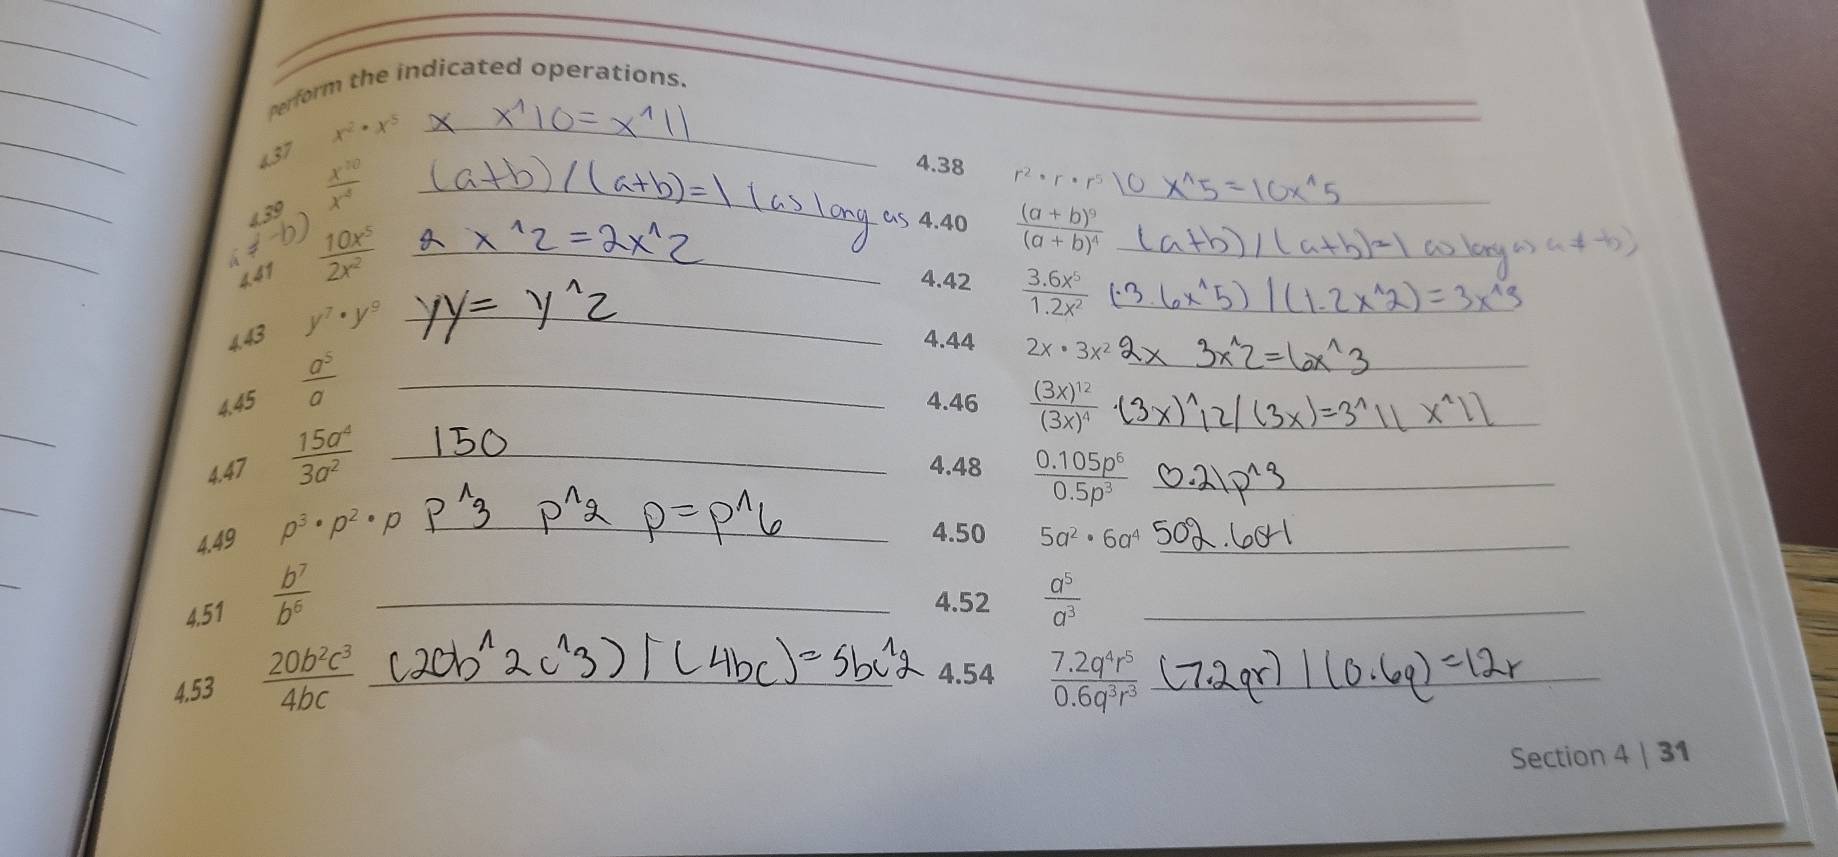 perform the indicated operations.
4.37 x² • x⁵ x x^10=x^11
4.38 r² • r • r⁵ 10 x^5=10x^5
4.39 x¹⁰/x⁴ (a+b)/(a+b)=1 (as long as
a≠-b)
4.40 (a + b)⁹/(a + b)⁴ (a+b)/(a+b)=1 as long as a≠-b)
4.41 10x⁵/2x² 2 x^2=2x^2
4.42 3.6x⁵/1.2x² (3.6x^5)/(1.2x^2)=3x^3
4.43 y⁷ • y⁹ yy= y^2
4.44 2x • 3x² 2x 3x^2=6x^3
4.45 a⁵/a
4.46 (3x)¹²/(3x)⁴ (3x)^12/(3x)=3^11 x^11
4.47 15a⁴/3a² 150
4.48 0.105p⁶/0.5p³ 0.21p^3
4.49 p³ • p² • p p^3 p^2 p=p^6
4.50 5a² • 6a⁴ 502.601
4.51 b⁷/b⁶
4.52 a⁵/a³
4.53 20b²c³/4bc (20b^2c^3)/(4bc)=5bc^2
4.54 7.2q⁴r⁵/0.6q³r³ (7.2qr)/(0.6q)=12r
Section 4 | 31